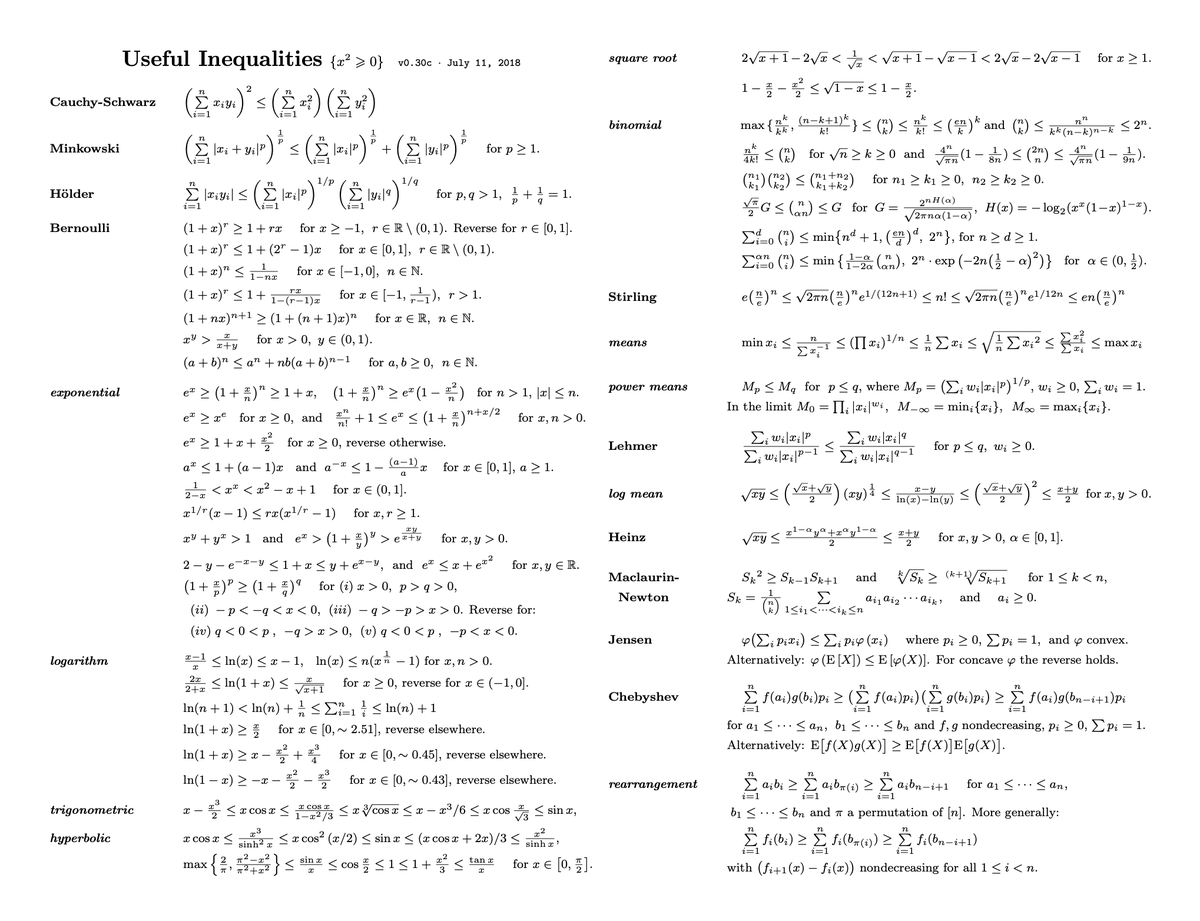 Useful Inequalities {x² ⩾ 0} v0.30c · July 11, 2018
Cauchy-Schwarz (∑_{i=1}^{n} x_i y_i)² ≤ (∑_{i=1}^{n} x_i²)(∑_{i=1}^{n} y_i²)
Minkowski (∑_{i=1}^{n} |x_i + y_i|^p)^{1/p} ≤ (∑_{i=1}^{n} |x_i|^p)^{1/p} + (∑_{i=1}^{n} |y_i|^p)^{1/p} for p ≥ 1.
Hölder ∑_{i=1}^{n} |x_i y_i| ≤ (∑_{i=1}^{n} |x_i|^p)^{1/p} (∑_{i=1}^{n} |y_i|^q)^{1/q} for p, q > 1, 1/p + 1/q = 1.
Bernoulli (1 + x)^r ≥ 1 + rx for x ≥ −1, r ∈ ℝ \ (0, 1). Reverse for r ∈ [0, 1].
(1 + x)^r ≤ 1 + (2^r − 1)x for x ∈ [0, 1], r ∈ ℝ \ (0, 1).
(1 + x)^n ≤ 1/(1−nx) for x ∈ [−1, 0], n ∈ ℕ.
(1 + x)^r ≤ 1 + rx/(1−(r−1)x) for x ∈ [−1, 1/(r−1)), r > 1.
(1 + nx)^{n+1} ≥ (1 + (n + 1)x)^n for x ∈ ℝ, n ∈ ℕ.
x^y > x/(x+y) for x > 0, y ∈ (0, 1).
(a + b)^n ≤ a^n + nb(a + b)^{n−1} for a, b ≥ 0, n ∈ ℕ.
exponential e^x ≥ (1 + x/n)^n ≥ 1 + x, (1 + x/n)^n ≥ e^x(1 − x²/n) for n > 1, |x| ≤ n.
e^x ≥ x^e for x ≥ 0, and x^n/n! + 1 ≤ e^x ≤ (1 + x/n)^{n+x/2} for x, n > 0.
e^x ≥ 1 + x + x²/2 for x ≥ 0, reverse otherwise.
a^x ≤ 1 + (a − 1)x and a^{−x} ≤ 1 − ((a−1)/a)x for x ∈ [0, 1], a ≥ 1.
1/(2−x) < x^x < x² − x + 1 for x ∈ (0, 1].
x^{1/r}(x − 1) ≤ rx(x^{1/r} − 1) for x, r ≥ 1.
x^y + y^x > 1 and e^x > (1 + x/y)^y > e^{xy/(x+y)} for x, y > 0.
2 − y − e^{−x−y} ≤ 1 + x ≤ y + e^{x−y}, and e^x ≤ x + e^{x²} for x, y ∈ ℝ.
(1 + x/p)^p ≥ (1 + x/q)^q for (i) x > 0, p > q > 0,
(ii) − p < −q < x < 0, (iii) − q > −p > x > 0. Reverse for:
(iv) q < 0 < p , −q > x > 0, (v) q < 0 < p , −p < x < 0.
logarithm (x−1)/x ≤ ln(x) ≤ x − 1, ln(x) ≤ n(x^{1/n} − 1) for x, n > 0.
2x/(2+x) ≤ ln(1 + x) ≤ x/√(x+1) for x ≥ 0, reverse for x ∈ (−1, 0].
ln(n + 1) < ln(n) + 1/n ≤ ∑_{i=1}^{n} 1/i ≤ ln(n) + 1
ln(1 + x) ≥ x/2 for x ∈ [0, ∼ 2.51], reverse elsewhere.
ln(1 + x) ≥ x − x²/2 + x³/4 for x ∈ [0, ∼ 0.45], reverse elsewhere.
ln(1 − x) ≥ −x − x²/2 − x³/2 for x ∈ [0, ∼ 0.43], reverse elsewhere.
trigonometric x − x³/2 ≤ x cos x ≤ (x cos x)/(1−x²/3) ≤ x ∛(cos x) ≤ x − x³/6 ≤ x cos (x/√3) ≤ sin x,
hyperbolic x cos x ≤ x³/sinh² x ≤ x cos² (x/2) ≤ sin x ≤ (x cos x + 2x)/3 ≤ x²/sinh x,
max {2/π, (π²−x²)/(π²+x²)} ≤ (sin x)/x ≤ cos x/2 ≤ 1 ≤ 1 + x²/3 ≤ (tan x)/x for x ∈ [0, π/2].
square root 2√(x + 1) − 2√x < 1/√x < √(x + 1) − √(x − 1) < 2√x − 2√(x − 1) for x ≥ 1.
1 − x/2 − x²/2 ≤ √(1 − x) ≤ 1 − x/2.
binomial max {n^k/k^k, (n−k+1)^k/k!} ≤ (n choose k) ≤ n^k/k! ≤ (en/k)^k and (n choose k) ≤ n^n/(k^k(n−k)^{n−k}) ≤ 2^n.
n^k/4k! ≤ (n choose k) for √n ≥ k ≥ 0 and 4^n/√(πn) (1 − 1/8n) ≤ (2n choose n) ≤ 4^n/√(πn) (1 − 1/9n).
(n₁ choose k₁)(n₂ choose k₂) ≤ (n₁+n₂ choose k₁+k₂) for n₁ ≥ k₁ ≥ 0, n₂ ≥ k₂ ≥ 0.
√π/2 G ≤ (n choose αn) ≤ G for G = 2^{nH(α)}/√(2πnα(1−α)), H(x) = − log₂(x^x(1−x)^{1−x}).
∑_{i=0}^{d} (n choose i) ≤ min{n^d + 1, (en/d)^d, 2^n}, for n ≥ d ≥ 1.
∑_{i=0}^{αn} (n choose i) ≤ min {(1−α)/(1−2α) (n choose αn), 2^n · exp (−2n(1/2 − α)²)} for α ∈ (0, 1/2).
Stirling e(n/e)^n ≤ √(2πn)(n/e)^n e^{1/(12n+1)} ≤ n! ≤ √(2πn)(n/e)^n e^{1/12n} ≤ en(n/e)^n
means min x_i ≤ n/∑x_i^{−1} ≤ (∏ x_i)^{1/n} ≤ 1/n ∑ x_i ≤ √(1/n ∑ x_i²) ≤ ∑x_i²/∑x_i ≤ max x_i
power means M_p ≤ M_q for p ≤ q, where M_p = (∑_i w_i|x_i|^p)^{1/p}, w_i ≥ 0, ∑_i w_i = 1.
In the limit M₀ = ∏_i |x_i|^{w_i}, M_{−∞} = min_i{x_i}, M_∞ = max_i{x_i}.
Lehmer ∑_i w_i|x_i|^p / ∑_i w_i|x_i|^{p−1} ≤ ∑_i w_i|x_i|^q / ∑_i w_i|x_i|^{q−1} for p ≤ q, w_i ≥ 0.
log mean √(xy) ≤ ((√x+√y)/2) (xy)^{1/4} ≤ (x−y)/(ln(x)−ln(y)) ≤ ((√x+√y)/2)² ≤ (x+y)/2 for x, y > 0.
Heinz √(xy) ≤ (x^{1−α}y^α+x^αy^{1−α})/2 ≤ (x+y)/2 for x, y > 0, α ∈ [0, 1].
Maclaurin- S_k² ≥ S_{k−1}S_{k+1} and ᵏ√(S_k) ≥ ⁽ᵏ⁺¹⁾√(S_{k+1}) for 1 ≤ k < n,
Newton S_k = 1/(n choose k) ∑_{1≤i₁<···<i_k≤n} a_{i₁}a_{i₂} ··· a_{i_k}, and a_i ≥ 0.
Jensen φ(∑_i p_i x_i) ≤ ∑_i p_i φ (x_i) where p_i ≥ 0, ∑ p_i = 1, and φ convex.
Alternatively: φ (E [X]) ≤ E [φ(X)]. For concave φ the reverse holds.
Chebyshev ∑_{i=1}^{n} f(a_i)g(b_i)p_i ≥ (∑_{i=1}^{n} f(a_i)p_i)(∑_{i=1}^{n} g(b_i)p_i) ≥ ∑_{i=1}^{n} f(a_i)g(b_{n−i+1})p_i
for a₁ ≤ ··· ≤ a_n, b₁ ≤ ··· ≤ b_n and f, g nondecreasing, p_i ≥ 0, ∑ p_i = 1.
Alternatively: E[f(X)g(X)] ≥ E[f(X)]E[g(X)].
rearrangement ∑_{i=1}^{n} a_i b_i ≥ ∑_{i=1}^{n} a_i b_{π(i)} ≥ ∑_{i=1}^{n} a_i b_{n−i+1} for a₁ ≤ ··· ≤ a_n,
b₁ ≤ ··· ≤ b_n and π a permutation of [n]. More generally:
∑_{i=1}^{n} f_i(b_i) ≥ ∑_{i=1}^{n} f_i(b_{π(i)}) ≥ ∑_{i=1}^{n} f_i(b_{n−i+1})
with (f_{i+1}(x) − f_i(x)) nondecreasing for all 1 ≤ i < n.